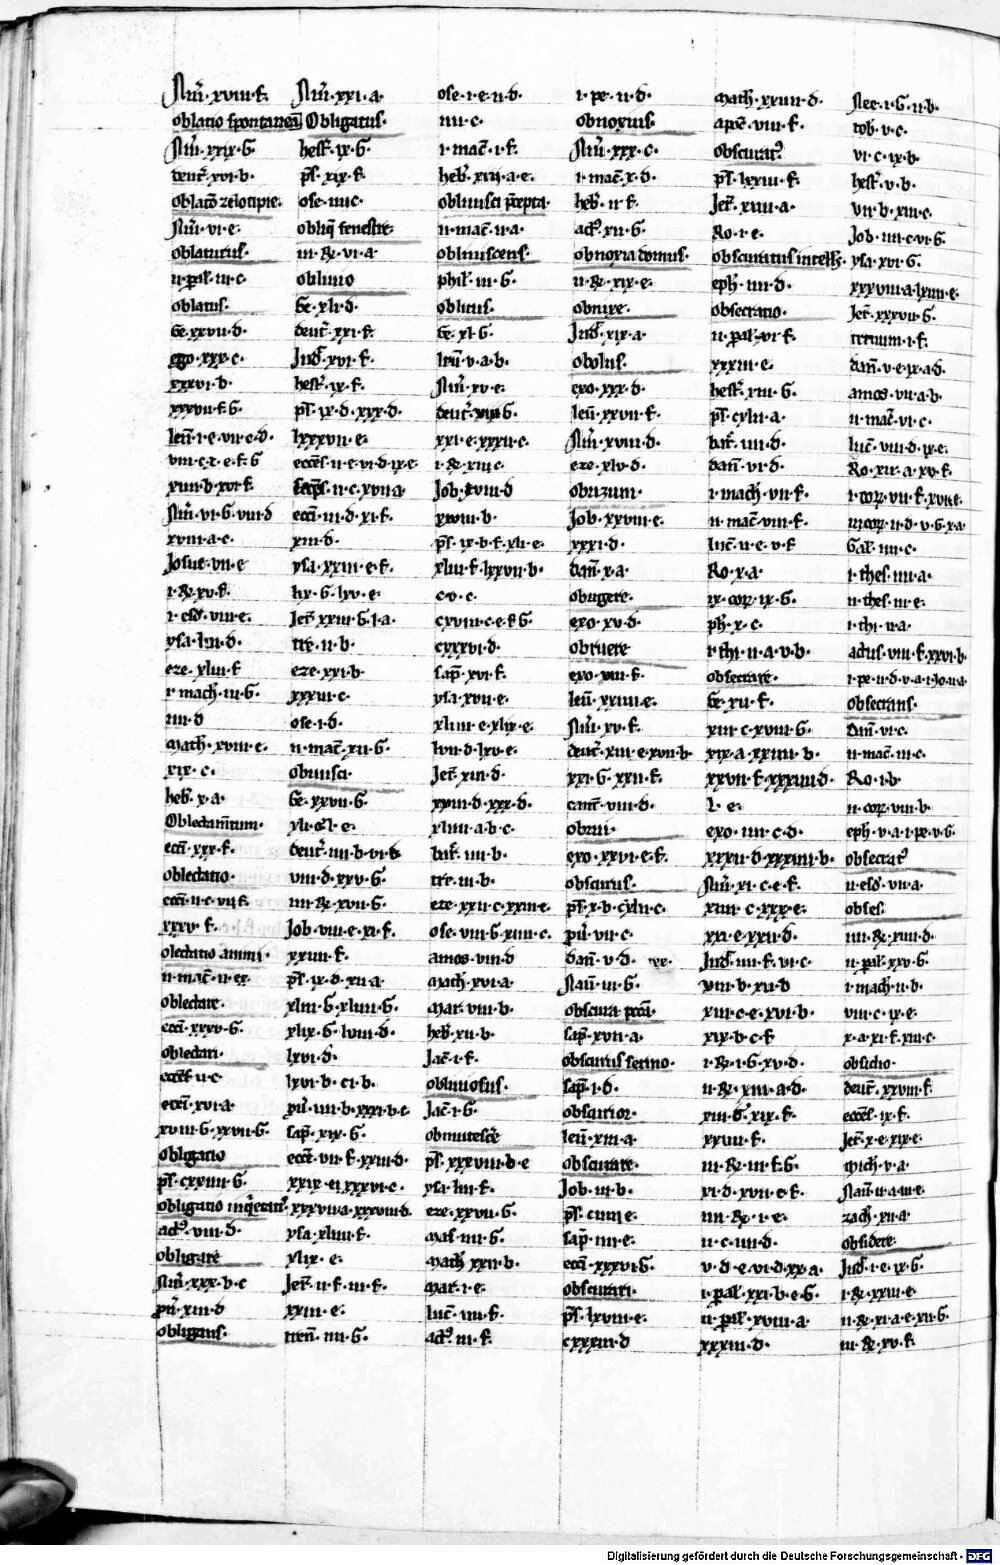 Nūi·xviii·f·
oblatio spontanea
Nūi·xxix·G·
deut̄·xvi·b·
oblatō zelotipie·
Nūi·vi·e·
oblaturus·
ii·pal̄·iii·c·
oblatus·
Ge·xxvii·d·
xxx·c·
xxxvi·b·
xxxvii·f·G·
leui̅·i·e·vii·c·d·
viii·c·x·e·f·G
xiiii·b·xvi·f·
Nūi·vi·G·viii·d
xviii·a·c·
Josue·vii·e
i·R·xv·f·
i·esd̄·viii·e·
ysa·liii·d·
eze·xliii·f
i·mach·iii·G·
iiii·d
Math·xviii·e·
xix·c·
heb̄·x·a·
Oblectamentum·
ecci̅·xxx·f·
oblectatio·
ecci̅·ii·c·vii·f·
xxxv·f·
olectatio animi·
ii·mac̄·ii·e·
oblectare·
ecci̅·xxxv·G·
oblectari·
eccēs·ii·c·
ecci̅·xvi·a·
xviii·G·xxvii·G·
obligatio
ps̄·cxxiiii·G·
act9·viii·d·
obligare
Nūi·xxx·b·c
pū·xiii·d
obligans·
Nūi·xxi·a·
Obligatus·
hest̄·ix·G·
ps̄·xix·f·
ose·iiii·c·
obliq̄ fenestre·
iii·R·vi·a·
obliuio
Ge·xli·d·
deut̄·xxi·f·
Jud̄·xvi·f·
hest̄·ix·f·
ps̄·ix·d·xxx·d·
lxxxvii·e·
eccēs·ii·e·vi·d·ix·c·
ecci̅·iii·d·xi·f·
xiii·d·
ysa·xxiii·e·f·
lix·G·lxv·e·
Jer̄·xxiii·G·l·a·
tre·ii·b·
eze·xxi·b·
xxxiii·c·
ose·i·d·
ii·mac̄·xii·G·
obliuisci·
Ge·xxvii·G·
xli·G·l·e·
deut̄·iiii·b·vi·d·
viii·d·xxv·G·
iiii·R·xvii·G·
Job·viii·e·xi·f·
xxiiii·f·
ps̄·ix·d·xii·a·
xliii·G·xliiii·G·
xlix·G·lviii·d·
lxvi·d·
lxvi·b·ci·b·
pū·iiii·b·xxxi·b·c
sap̄·xix·G·
ecci̅·vii·f·xxiii·d·
xxix·ei xxxvi·c·
xxxvii·a·xxxviii·d·
ysa·xliiii·f·
xlix·e·
Jer̄·ii·f·iii·f·
xxiii·e·
tren̄·iiii·G·
ose·i·e·ii·d·
iiii·c·
i·mac̄·i·f·
heb̄·xiii·a·e·
obliuisci p̄cepta·
ii·mac̄·ii·a·
obliuiscens·
phil·iii·G·
oblitus·
Ge·xl·G·
leū·v·a·b·
Nūi·xv·e·
xxi·e·xxxii·c·
i·R·xiii·c·
Job·xviii·d
ps̄·ix·b·f·xli·e·
xliii·f·lxxvii·b·
c·v·c·
cxviii·c·e·f·G·
cxxxvi·d·
sap̄·xvi·f·
ysa·xvii·e·
xliiii·e·xlix·e·
lvii·d·lxv·e·
Jer̄·xiii·d·
xxiii·d·xxx·d·
xliiii·a·b·c·
bar̄·iiii·b·
tre·iii·b·
eze·xxii·c·xxiii·e·
ose·viii·G·xiiii·c·
amos·viii·d
Math·xvi·a·
Mar·viii·b·
heb̄·xii·b·
Jac̄·i·f·
obliuiosus·
Jac̄·i·G·
obmutescē
ps̄·xxxviii·b·e
ysa·liii·f·
eze·xxvii·G·
Mat·iiii·G·
Math xxii·b·
Mar·i·e·
luc̄·iiii·f·
act9·iii·f·
i·pe·ii·d·
obnoxius·
Nūi·xxx·c·
i·mac̄·x·d·
heb̄·ii·f·
act9·xii·G·
obnoxia domus·
ii·R·xix·e·
obnixe·
Jud̄·xix·a·
obolus·
exo·xxx·d·
leū·xxvii·f·
Nūi·xviii·d·
eze·xlv·d·
obrizum·
Job·xxviii·e·
xxxi·d·
dan̄·x·a·
obrigere·
exo·xv·d·
obruere
exo·xiiii·f·
leū·xxiiii·e·
Nūi·xv·f·
deut̄·xiii·e·xvii·b·
xxi·G·xxii·f·
cant̄·viii·d·
obrui·
exo·xxvi·e·f·
obscurus·
ps̄·x·b·cxlii·c·
pū·vii·c·
dan̄·v·d·
Naū·iii·G·
obscura
sap̄·xvii·a·
obscurus sermo·
sap̄·i·d·
obscurior·
leū·xiii·a
obscurare·
Job·iii·b·
ps̄·ciiii·e·
sap̄·iiii·e·
ecci̅·xxxvi·G·
obscurari·
ps̄·lxviii·e·
cxxxiii·d
Math·xxiiii·d·
apoc̄·viii·f·
obscurat9
ps̄·lxxiii·f·
Jer̄·xiiii·a·
Ro·i·e·
obscuratus intell̄·
eph̄·iiii·d·
obsecratio·
ii·pal̄·vi·f·
xxxiii·e·
hest̄·xiii·G·
ps̄·cxlii·a·
bar̄·iiii·d·
dan̄·vi·d·
i·mach·vii·f·
ii·mac̄·viii·f·
luc̄·ii·e·v·f
Ro·x·a·
ii·cor·ix·G·
ph̄·x·c·
i·thi·ii·a·v·b·
obsecrare·
Ge·xii·f·
xiii·c·xviii·G·
xix·a·xxiiii·b·
xxvii·f·xxxiiii·d·
l·e·
exo·iiii·c·d·
xxxii·d·xxxiiii·b·
Nūi·xi·c·e·f·
xiiii·c·xxx·e·
xxi·e·xxii·d·
Jud̄·iiii·f·vi·c·
viii·b·xii·d
xiii·c·e·xvi·b·
xix·b·c·f
i·R·i·G·xv·d·
ii·R·xiii·a·d·
xiii·G·xix·f·
xxiiii·f·
iii·R·iii·f·G·
xi·d·xvii·e·f·
iiii·R·i·e·
ii·c·iiii·d·
v·d·e·vi·d·xx·a·
i·pal̄·xxi·b·e·G·
ii·pal̄·xviii·a·
xxxiii·d·
Nee·i·G·ii·b·
tob·v·c·
vi·c·ix·b·
hest̄·v·b·
vii·b·xiii·c·
Job·iiii·c·vi·G·
ysa·xvi·G·
xxxviii·a·lxiiii·e·
Jer̄·xxxvii·G·
trenum·i·f·
dan̄·v·e·ix·a·d·
amos·vii·a·b·
ii·mac̄·vi·c·
luc̄·viii·d·ix·e·
Ro·xii·a·xv·f·
i·cor·vii·f·xvi·e·
ii·cor·ii·d·v·G·x·a·
Gal̄·iiii·c·
i·thes·iiii·a·
ii·thes·iii·e·
i·thi·ii·a·
actus·viii·f·xxvi·b·
i·pe·ii·d·v·a·i·Jo·ii·a·
obsecrans·
Dan̄·vi·c·
ii·mac̄·iii·c·
Ro·i·b·
ii·cor·viii·b·
eph·v·a·i·pe·v·G·
obsecrat9
ii·esd̄·vii·a·
obses·
iiii·R·xiiii·d·
ii·pal̄·xxv·G·
i·mach·ii·b·
viii·c·ix·e·
x·a·xi·f·xiii·c·
obsidio·
deut̄·xxviii·f·
eccēs·ix·f·
Jer̄·x·e·xix·e·
Mich·v·a·
Naū·ii·a·iii·e·
zach·xii·a·
obsidere·
Jud̄·i·e·ix·G·
i·R·xxiii·e·
ii·R·xi·a·e·xii·G·
iii·R·xv·f·
Digitalisierung gefördert durch die Deutsche Forschungsgemeinschaft - DFG